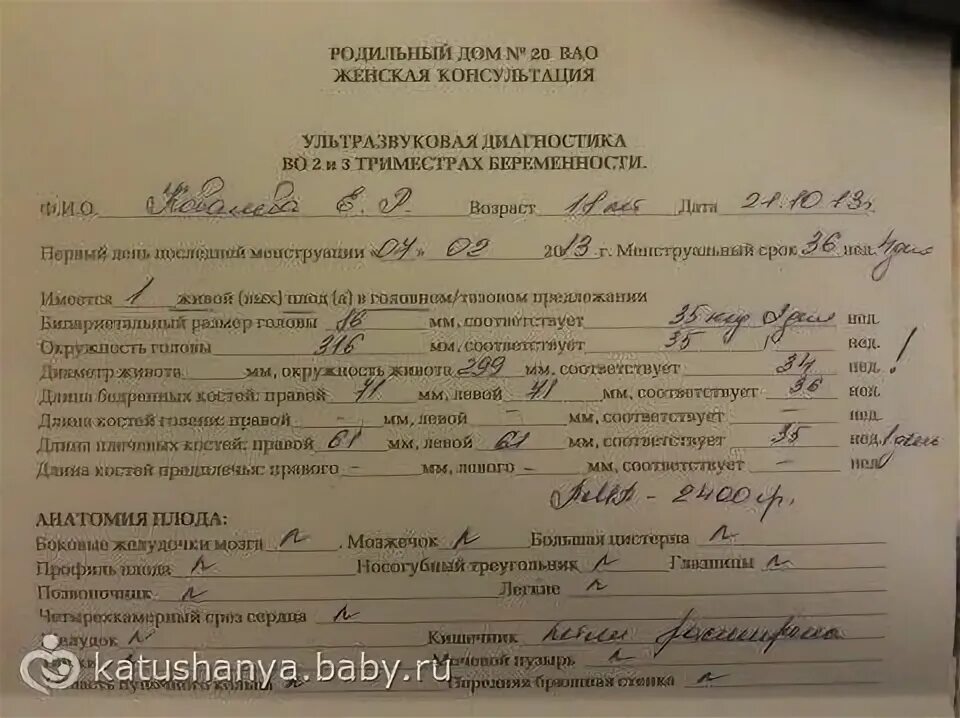 РОДИЛЬНЫЙ ДОМ № 20 ВАО
ЖЕНСКАЯ КОНСУЛЬТАЦИЯ
УЛЬТРАЗВУКОВАЯ ДИАГНОСТИКА
ВО 2 и 3 ТРИМЕСТРАХ БЕРЕМЕННОСТИ.
Ф.И.О. Ковалева Е. Р. Возраст лет Дата 21.10.13г.
Первый день последней менструации «07» 02 2013 г. Менструальный срок 36 нед. 4 дня
Имеется 1 живой (ых) плод (а) в головном/тазовом предложении
Бипариетальный размер головы 86 мм, соответствует 35 нед дня нед.
Окружность головы 316 мм, соответствует 35 нед. !
Диаметр живота мм, окружность живота 299 мм, соответствует 34 нед.
Длина бедренных костей: правой 71 мм, левой 71 мм, соответствует 36 нед.
Длина костей голени: правой - мм, левой - мм, соответствует - нед.
Длина плечевых костей: правой 61 мм, левой 61 мм, соответствует 35 нед. 1 день
Длина костей предплечья: правого - мм, левого - мм, соответствует - нед
ПМП - 2400 гр.
АНАТОМИЯ ПЛОДА:
Боковые желудочки мозга N . Мозжечок N Большая цистерна N
Профиль плода N Носогубный треугольник N Глазницы N
Позвоночник N Легкие N
Четырехкамерный срез сердца N
Желудок N Кишечник петли расширены
Мочевой пузырь N
katushanya.baby.ru
Передняя брюшная стенка N